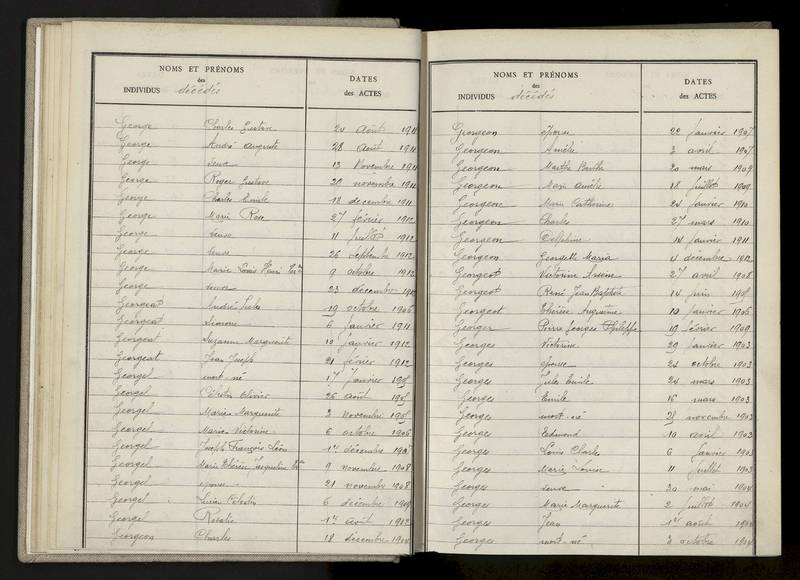 NOMS ET PRÉNOMS
des
INDIVIDUS décédés
DATES
des ACTES
George Charles Gustave 24 Août 1911
George André Auguste 28 Août 1911
George Veuve 13 Novembre 1911
George Roger Gustave 29 novembre 1911
George Charles Emile 18 decembre 1911
George Marie Rose 27 février 1912
George Veuve 11 Juillet 1912
George Veuve 26 Septembre 1912
George Marie Louis Henri 9 octobre 1912
George Veuve 23 décembre 1912
Georgeat André Jules 19 octobre 1906
Georgeat Simone 6 Janvier 1911
Georgeat Suzanne Marguerite 10 Janvier 1912
Georgeat Jean Joseph 21 février 1912
Georgel mort-né 17 Janvier
Georgel Célestin Olivier 26 août
Georgel Marie Marguerite 3 novembre
Georgel Marie Victorine 6 octobre 1906
Georgel Joseph François Léon 1er décembre
Georgel Marie Thérèse Jacqueline 9 novembre 1908
Georgel épouse 21 novembre 1908
Georgel Lucien Célestin 6 décembre 1909
Georgel Rosalie 1er août 1912
Georgeon Charles 18 décembre 1904
NOMS ET PRÉNOMS
des
INDIVIDUS décédés
DATES
des ACTES
Georgeon épouse 20 Janvier 1907
Georgeon Amélie 3 avril 1907
Georgeon Marthe Berthe 20 mars 1909
Georgeon Marie Amélie 18 Juillet 1909
Georgeon Marie Catherine 24 Janvier 1910
Georgeon Charles 27 mars 1910
Georgeon Delphine 14 Janvier 1911
Georgeon Georgette Maria 4 décembre 1912
Georgeot Victorine Arsène 27 avril 1908
Georgeot René Jean Baptiste 14 Juin
Georgeot Thérèse Augustine 10 Janvier 1906
Georger Pierre Georges Philippe 19 février 1909
Georges Victorine 29 Janvier 1903
Georges épouse 24 octobre 1903
Georges Jules Emile 24 mars 1903
Georges Emile 16 mars 1903
Georges mort-né 28 novembre 1903
Georges Edmond 10 avril 1903
Georges Louis Charles 6 Janvier 1903
Georges Marie Louise 11 Juillet 1903
Georges Veuve 20 mai 1904
Georges Marie Marguerite 2 Juillet 1904
Georges Jean 1er août 1904
Georges mort-né 3 octobre 1904